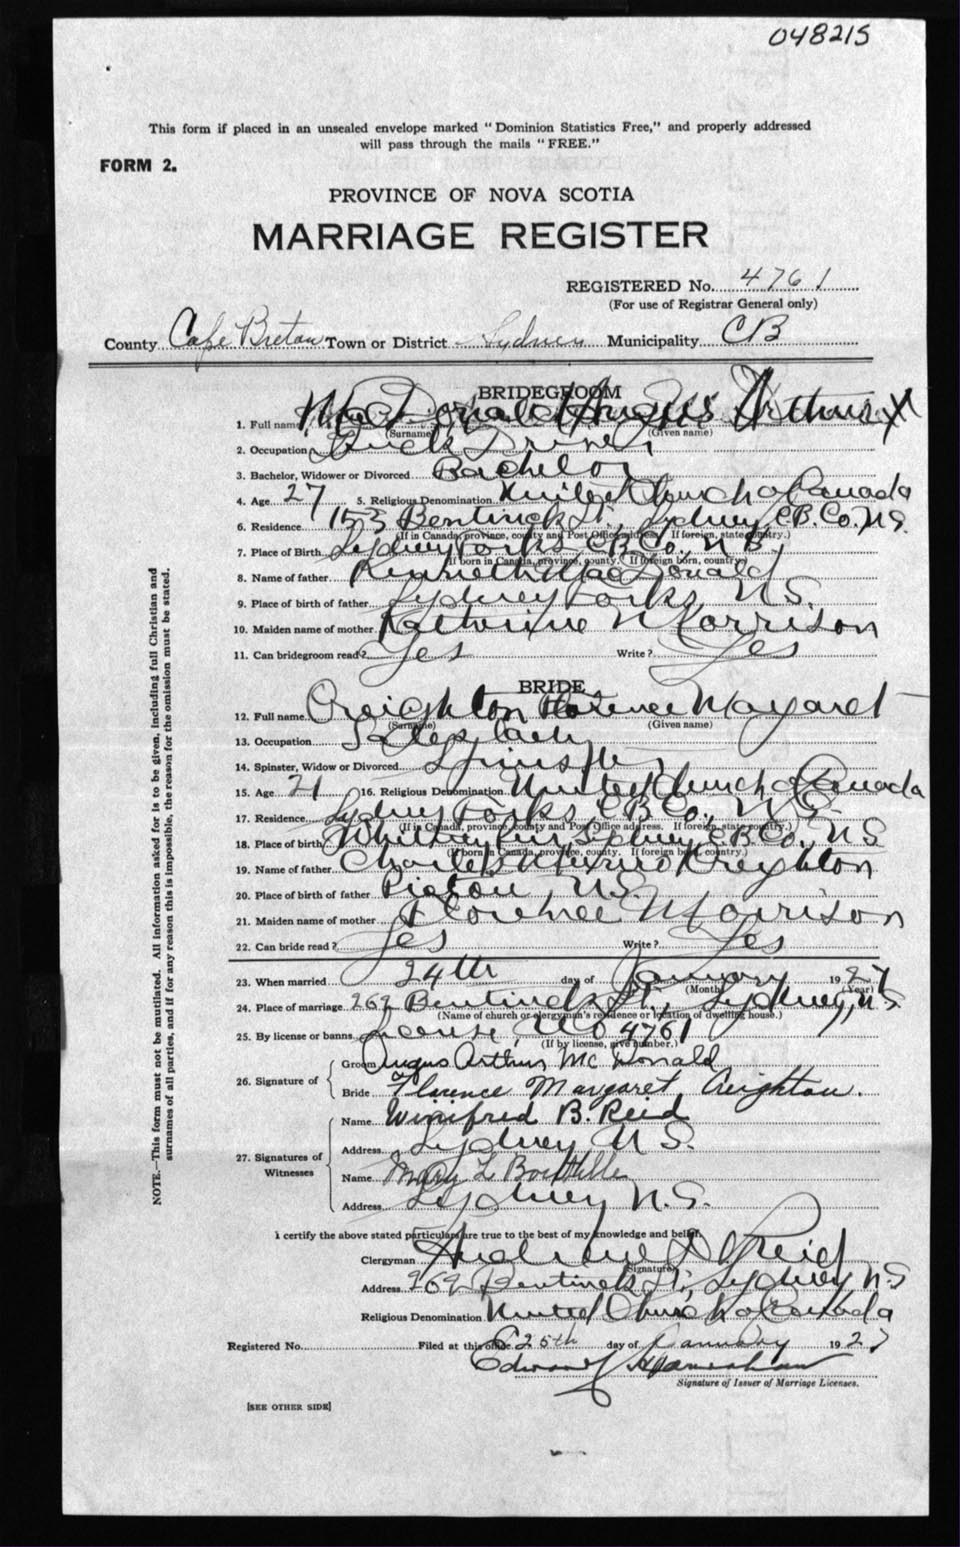 048215
This form if placed in an unsealed envelope marked "Dominion Statistics Free," and properly addressed
will pass through the mails "FREE."
FORM 2.
PROVINCE OF NOVA SCOTIA
MARRIAGE REGISTER
REGISTERED No. 4761
(For use of Registrar General only)
County Cape Breton Town or District Sydney Municipality CB
BRIDEGROOM
1. Full name MacDonald Angus Arthur
(Surname) (Given name)
2. Occupation Truck Driver
3. Bachelor, Widower or Divorced Bachelor
4. Age 27 5. Religious Denomination United Church of Canada
6. Residence 153 Bentinck St., Sydney, C.B. Co., N.S.
(If in Canada, province, county and Post Office address. If foreign, state country.)
7. Place of Birth Sydney Forks, C.B. Co., N.B.
(If born in Canada, province, county. If foreign born, country)
8. Name of father Kenneth MacDonald
9. Place of birth of father Sydney Forks, N.S.
10. Maiden name of mother Katherine Morrison
11. Can bridegroom read? Yes Write? Yes
BRIDE
12. Full name Creighton Florence Margaret
(Surname) (Given name)
13. Occupation Saleslady
14. Spinster, Widow or Divorced Spinster
15. Age 21 16. Religious Denomination United Church of Canada
17. Residence Sydney Forks, C.B. Co., N.S.
(If in Canada, province, county and Post Office address. If foreign, state country.)
18. Place of birth Whitney Pier, Sydney, C.B. Co., N.S.
(If born in Canada, province, county. If foreign born, country.)
19. Name of father Charles Creighton
20. Place of birth of father Pictou, N.S.
21. Maiden name of mother Florence Morrison
22. Can bride read? Yes Write? Yes
23. When married 24th day of January 1927
(Month) (Year)
24. Place of marriage 269 Bentinck St., Sydney, N.S
(Name of church or clergyman's residence or location of dwelling house.)
25. By license or banns License, No 4761
(If by license, give number.)
26. Signature of Groom Angus Arthur McDonald
Bride Florence Margaret Creighton.
27. Signatures of Witnesses Name Winifred B. Reid
Address Sydney N.S.
Name Mary L
Address Sydney N.S.
I certify the above stated particulars are true to the best of my knowledge and belief.
Clergyman Andrew D Reid
(Signature)
Address 269 Bentinck St., Sydney N.S
Religious Denomination United Church of Canada
Registered No. Filed at this office 25th day of January 1927
Edward
Signature of Issuer of Marriage Licenses.
[SEE OTHER SIDE]
NOTE.—This form must not be mutilated. All information asked for is to be given, including full Christian and
surnames of all parties, and if for any reason this is impossible, the reason for the omission must be stated.